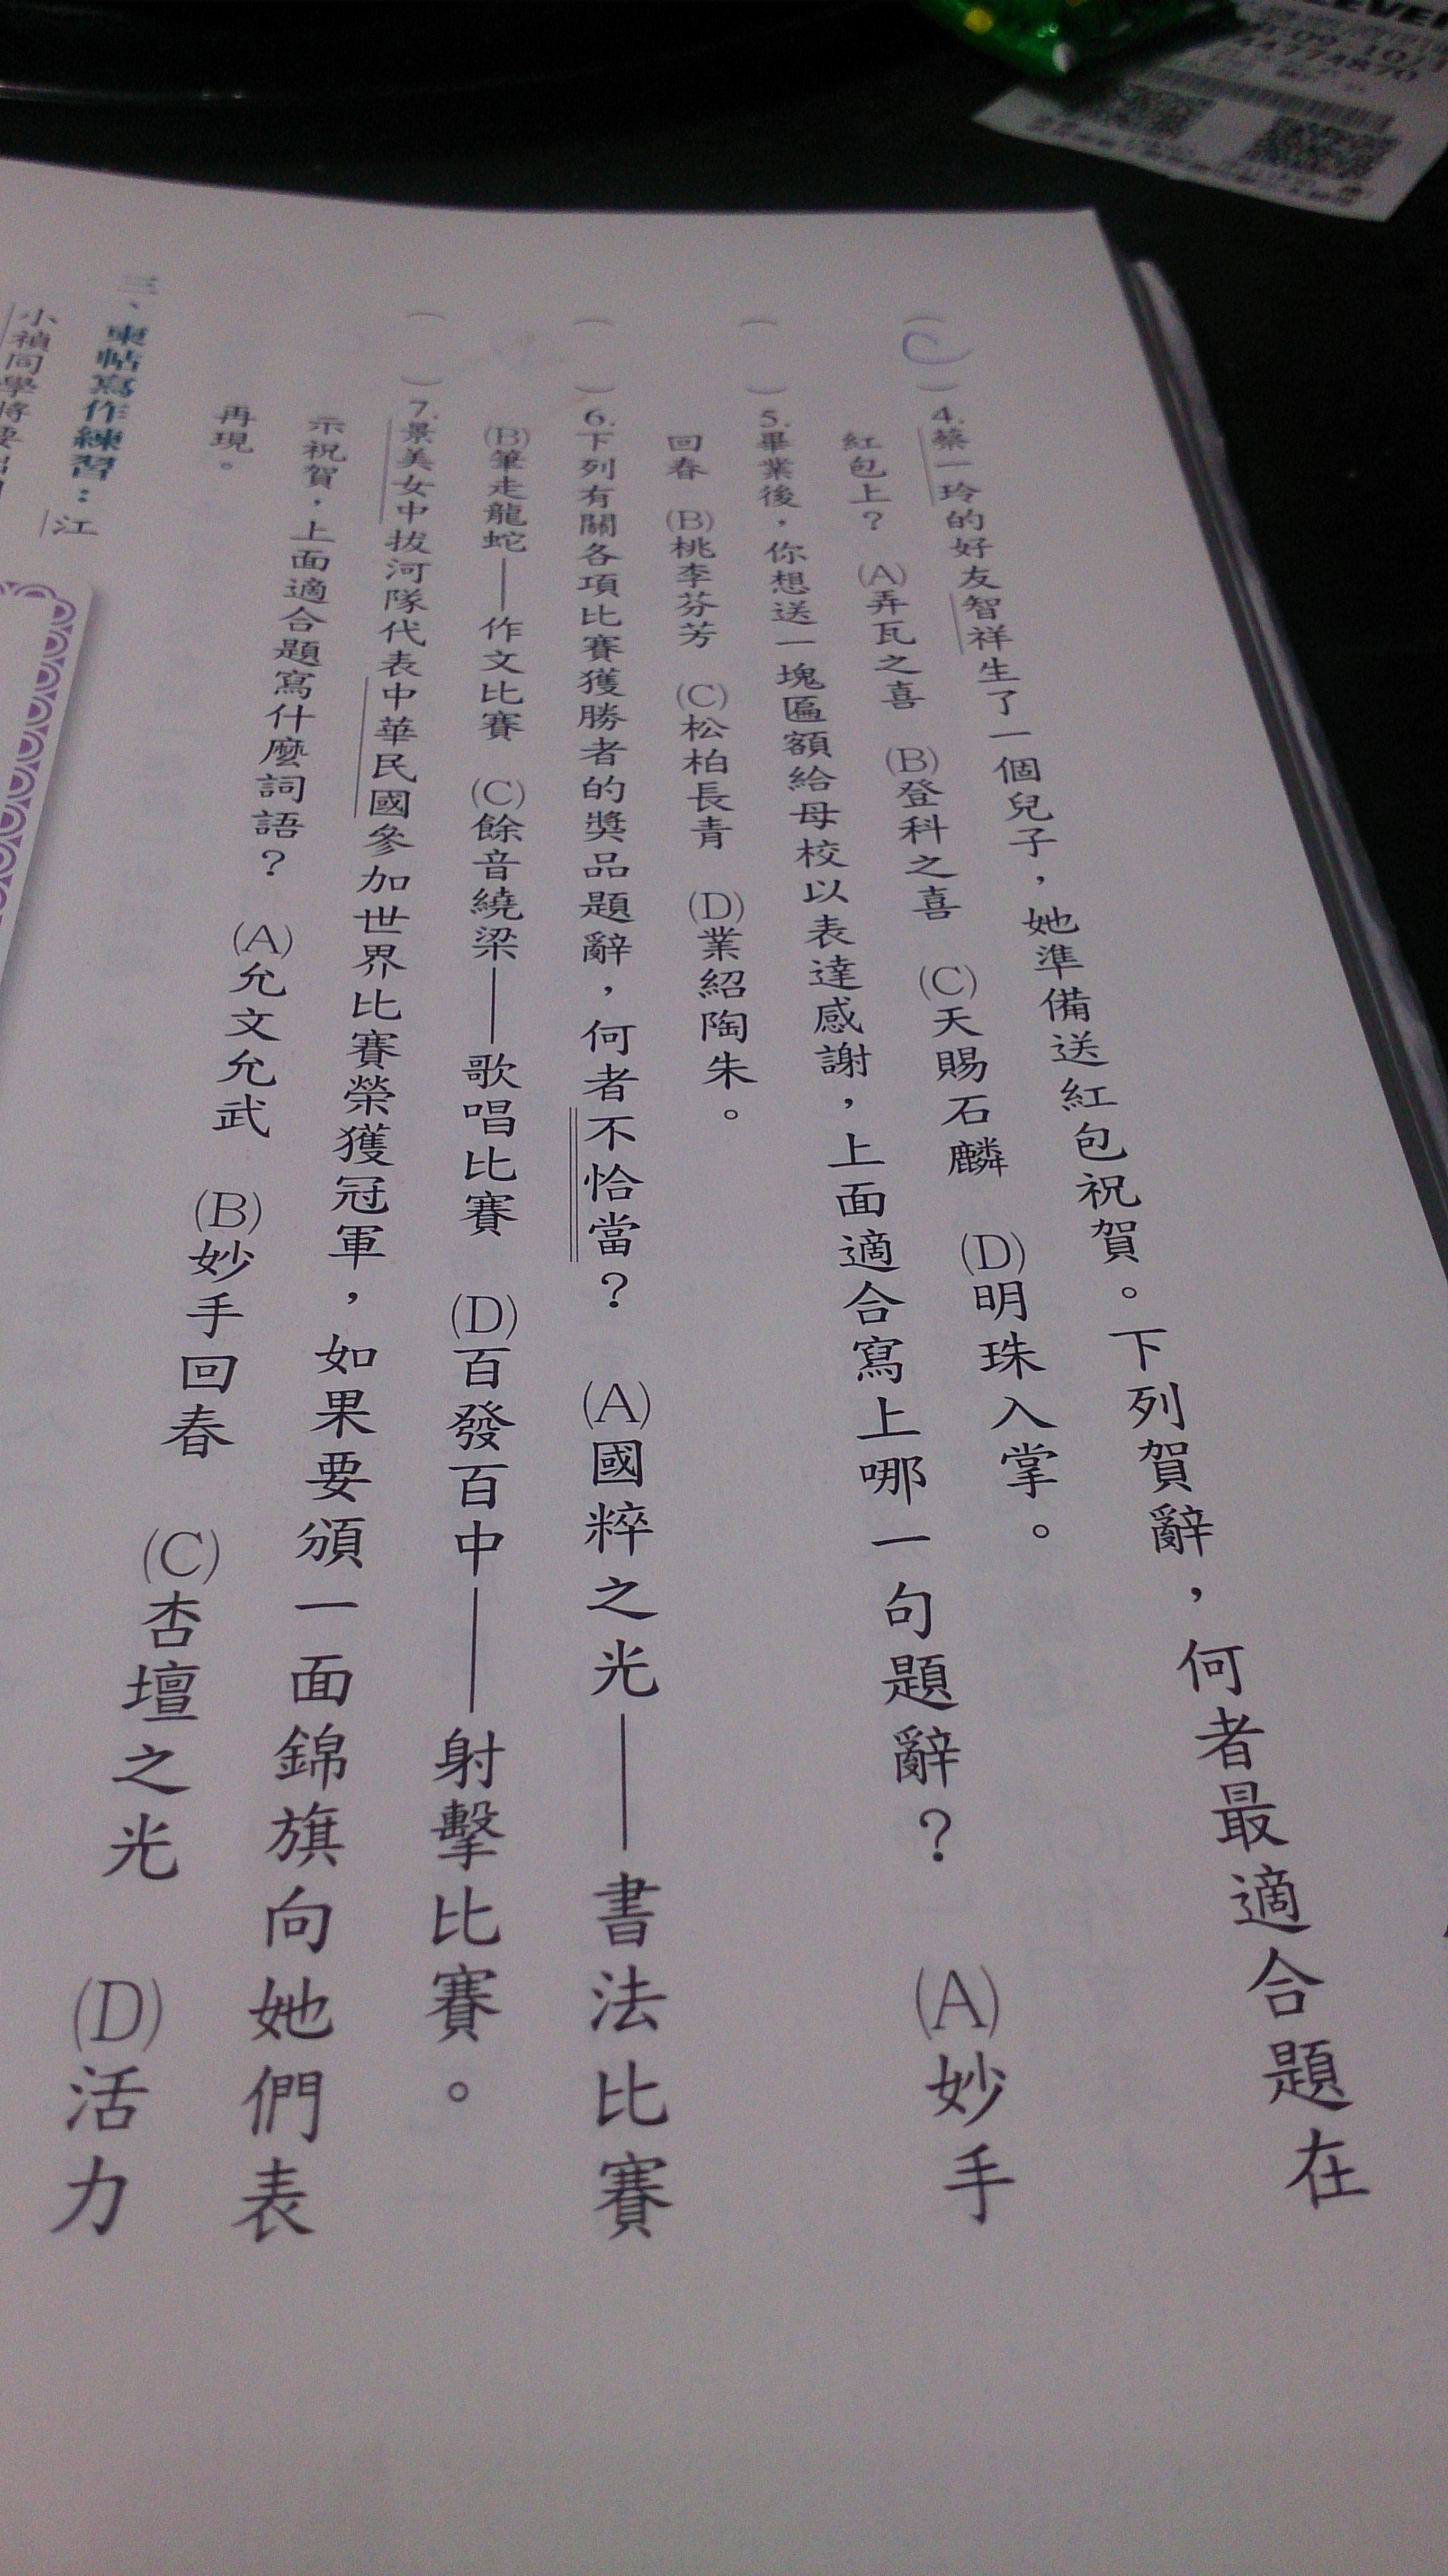 (C)4.蔡一玲的好友智祥生了一個兒子，她準備送紅包祝賀。下列賀辭，何者最適合題在
紅包上？ (A)弄瓦之喜 (B)登科之喜 (C)天賜石麟 (D)明珠入掌。
( )5.畢業後，你想送一塊匾額給母校以表達感謝，上面適合寫上哪一句題辭？ (A)妙手
回春 (B)桃李芬芳 (C)松柏長青 (D)業紹陶朱。
( )6.下列有關各項比賽獲勝者的獎品題辭，何者不恰當？ (A)國粹之光——書法比賽
(B)筆走龍蛇——作文比賽 (C)餘音繞梁——歌唱比賽 (D)百發百中——射擊比賽。
( )7.景美女中拔河隊代表中華民國參加世界比賽榮獲冠軍，如果要頒一面錦旗向她們表
示祝賀，上面適合題寫什麼詞語？ (A)允文允武 (B)妙手回春 (C)杏壇之光 (D)活力
再現。
三、柬帖寫作練習：江
小禎同學將要